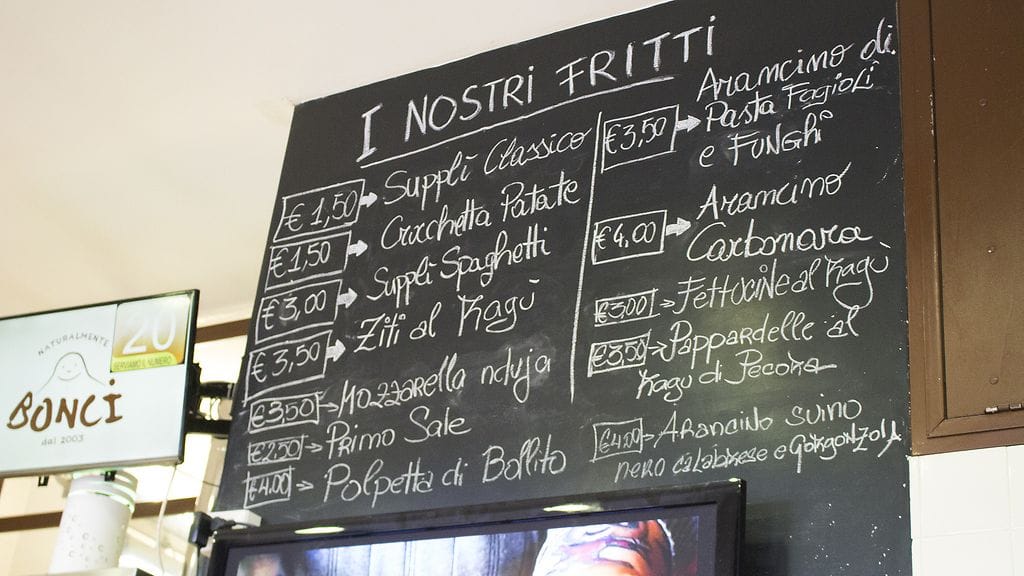 I NOSTRI FRITTI
€ 1,50 Supplì Classico
€1,50 Crocchetta Patate
€3,00 Supplì Spaghetti
€3,50 Ziti al Ragù
€3,50 Mozzarella nduja
€2.50 Primo Sale
€4.00 Polpetta di Bollito
€3,50 Arancino di
Pasta Fagioli
e FUNGhi
€4,00 Arancino
Carbonara
€3.00 FeTTUCiNe al Ragù
€3.50 Pappardelle al
Ragù di Pecora
€4.00 ARANCiNO suino
nero calabrese e GORGONZOLA
NATURALMENTE
BONCI
dal 2003
20
SERVIAMO IL NUMERO